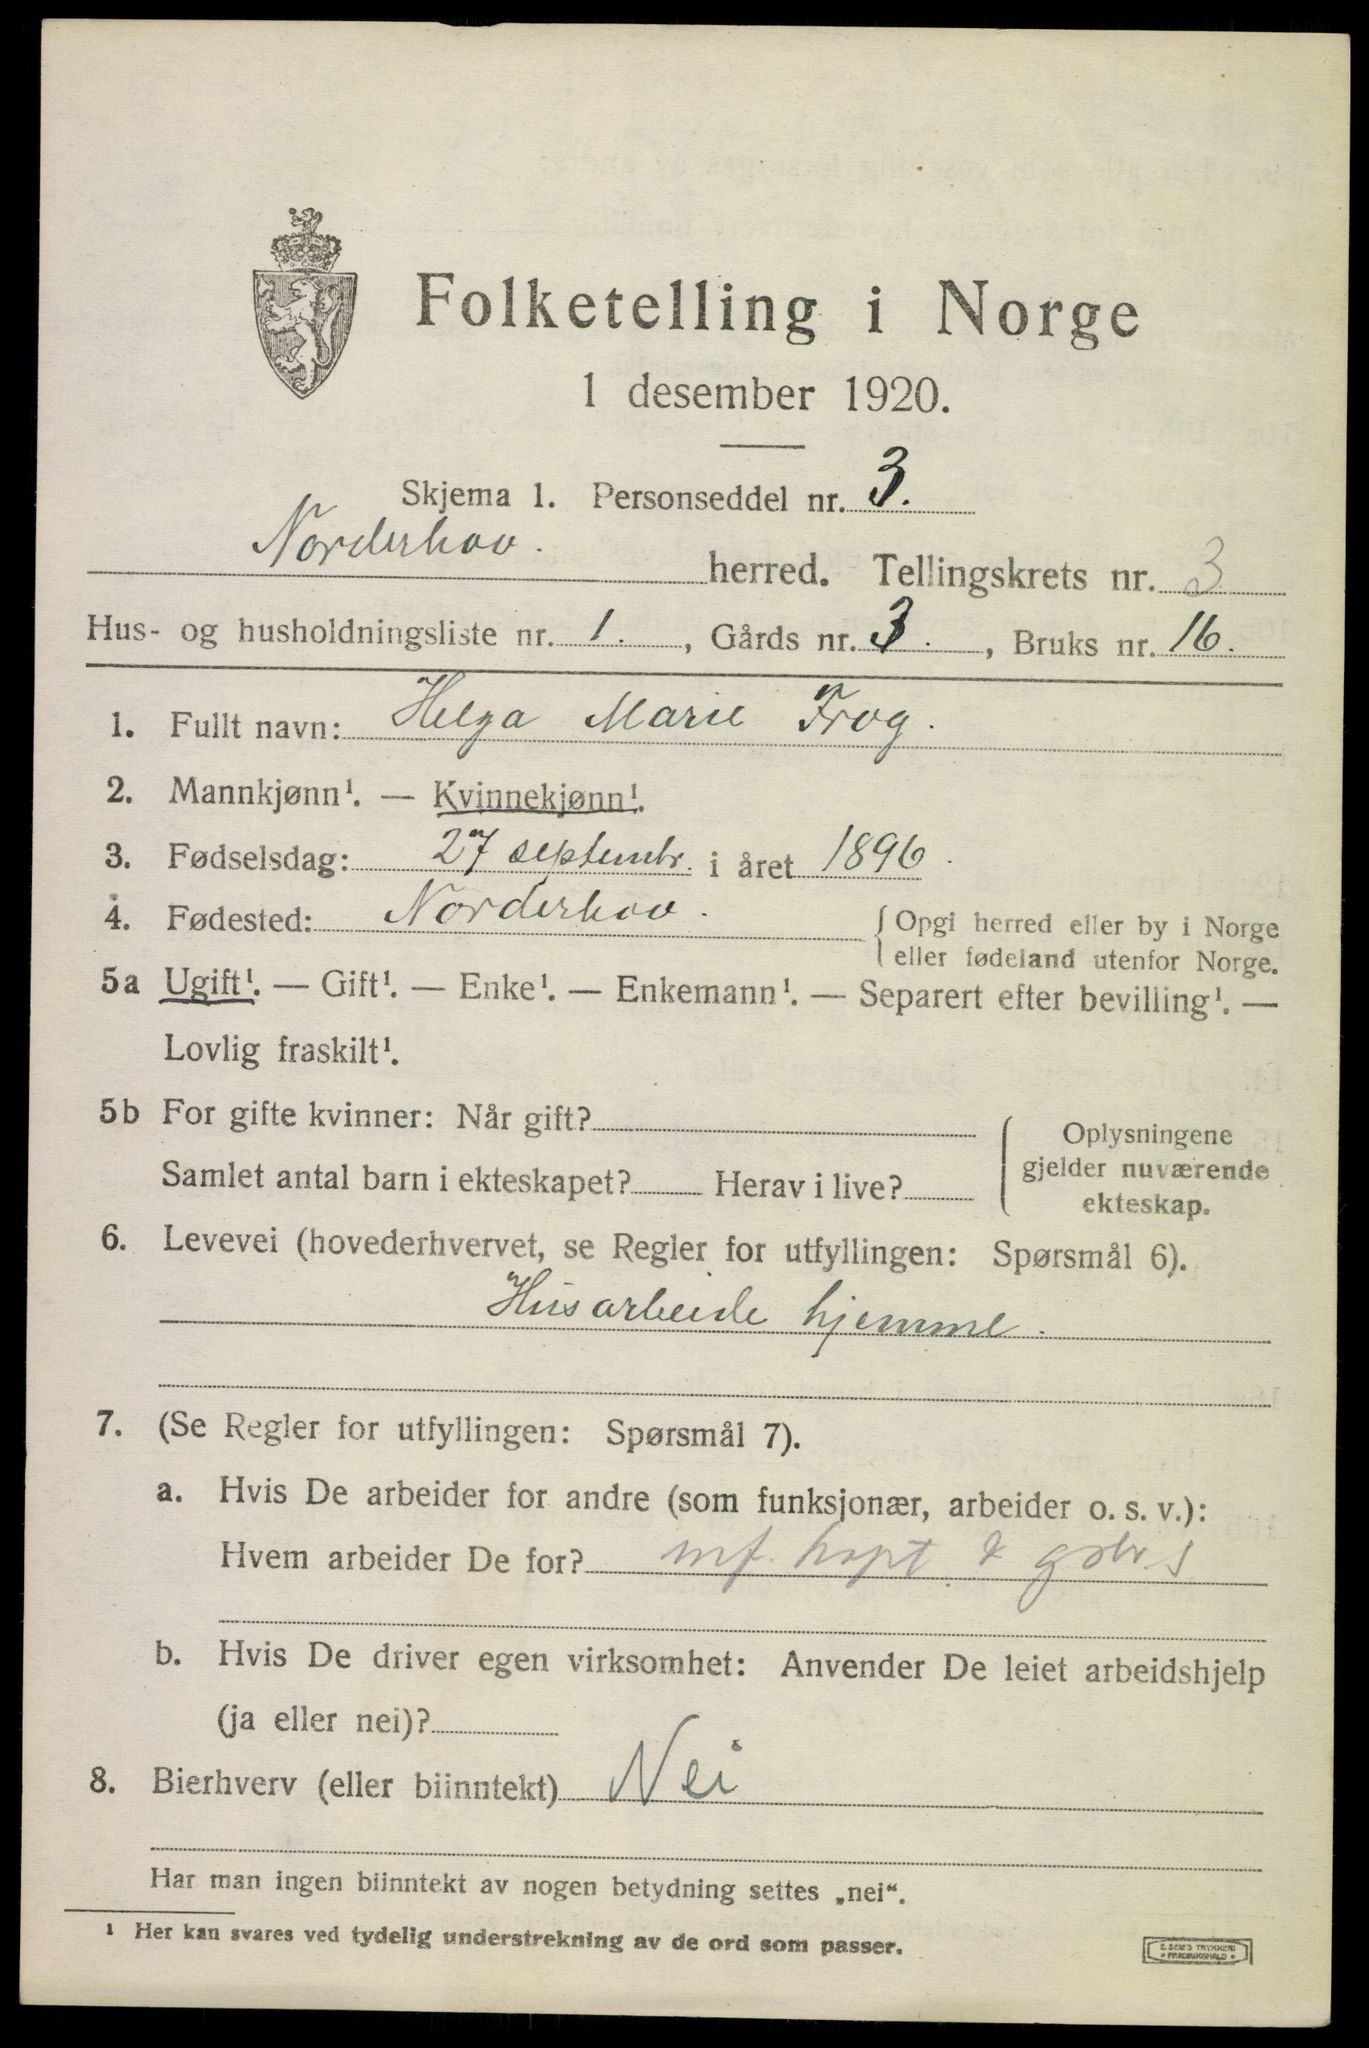 Folketelling i Norge
1 desember 1920.
Skjema 1. Personseddel nr. 3.
Norderhov. herred. Tellingskrets nr. 3
Hus- og husholdningsliste nr. 1. , Gårds nr. 3. , Bruks nr. 16.
1. Fullt navn: Helga Marie Frog.
2. Mannkjønn¹. — Kvinnekjønn¹.
3. Fødselsdag: 27 septembr. i året 1896.
4. Fødested: Norderhov. { Opgi herred eller by i Norge
eller fødeland utenfor Norge.
5a Ugift¹. — Gift¹. — Enke¹. — Enkemann¹. — Separert efter bevilling¹. —
Lovlig fraskilt¹.
5b For gifte kvinner: Når gift?
Samlet antal barn i ekteskapet? Herav i live?
{ Oplysningene
gjelder nuværende
ekteskap.
6. Levevei (hovederhvervet, se Regler for utfyllingen: Spørsmål 6).
Husarbeide hjemme.
7. (Se Regler for utfyllingen: Spørsmål 7).
a. Hvis De arbeider for andre (som funksjonær, arbeider o. s. v.):
Hvem arbeider De for?
b. Hvis De driver egen virksomhet: Anvender De leiet arbeidshjelp
(ja eller nei)?
8. Bierhverv (eller biinntekt) Nei
Har man ingen biinntekt av nogen betydning settes „nei“.
¹ Her kan svares ved tydelig understrekning av de ord som passer.
E. SEM'S TRYKKERI
• FREDRIKSHALD •